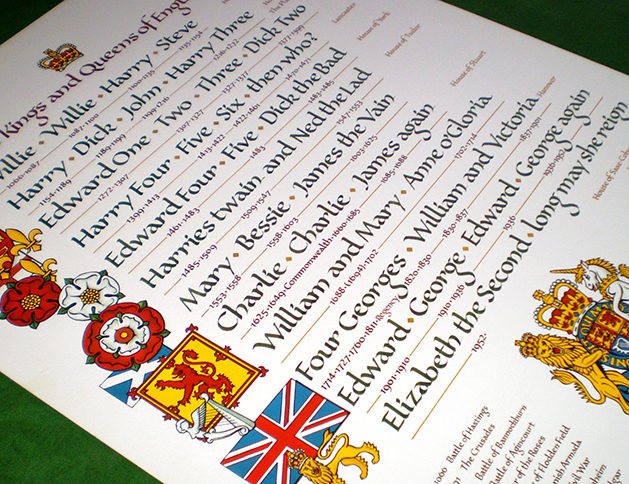 Kings and Queens of Eng
Willie · Willie · Harry · Steve
1066-1087 1087-1100 1100-1135 1135-1154
Harry · Dick · John · Harry Three
1154-1189 1189-1199 1199-1216 1216-1272
The Pla
Edward One · Two · Three · Dick Two
1272-1307 1307-1327 1327-1377 1377-1399
Lancaster
Harry Four · Five · Six · then who?
1399-1413 1413-1422 1422-1461 1470-1471
House of York
Edward Four · Five · Dick the Bad
1461-1483 1483 1483-1485
House of Tudor
Harries twain and Ned the Lad
1485-1509 1509-1547 1547-1553
Mary · Bessie · James the Vain
1553-1558 1558-1603 1603-1625
House of Stuart
Charlie · Charlie · James again
1625-1649-Commonwealth-1660-1685 1685-1688
William and Mary · Anne o'Gloria
1688-(1694)-1702 1702-1714
Hanover
Four Georges · William and Victoria
1714-1727-1760-1811-Regency-1820-1830 1830-1837 1837-1901
Edward · George · Edward · George again
1901-1910 1910-1936 1936 1936-1952
House of Saxe Cobu
Elizabeth the Second · long may she reign
1952-
1066 Battle of Hastings
The Crusades
Battle of Bannockburn
Battle of Agincourt
of the Roses
of Flodden Field
Armada
War